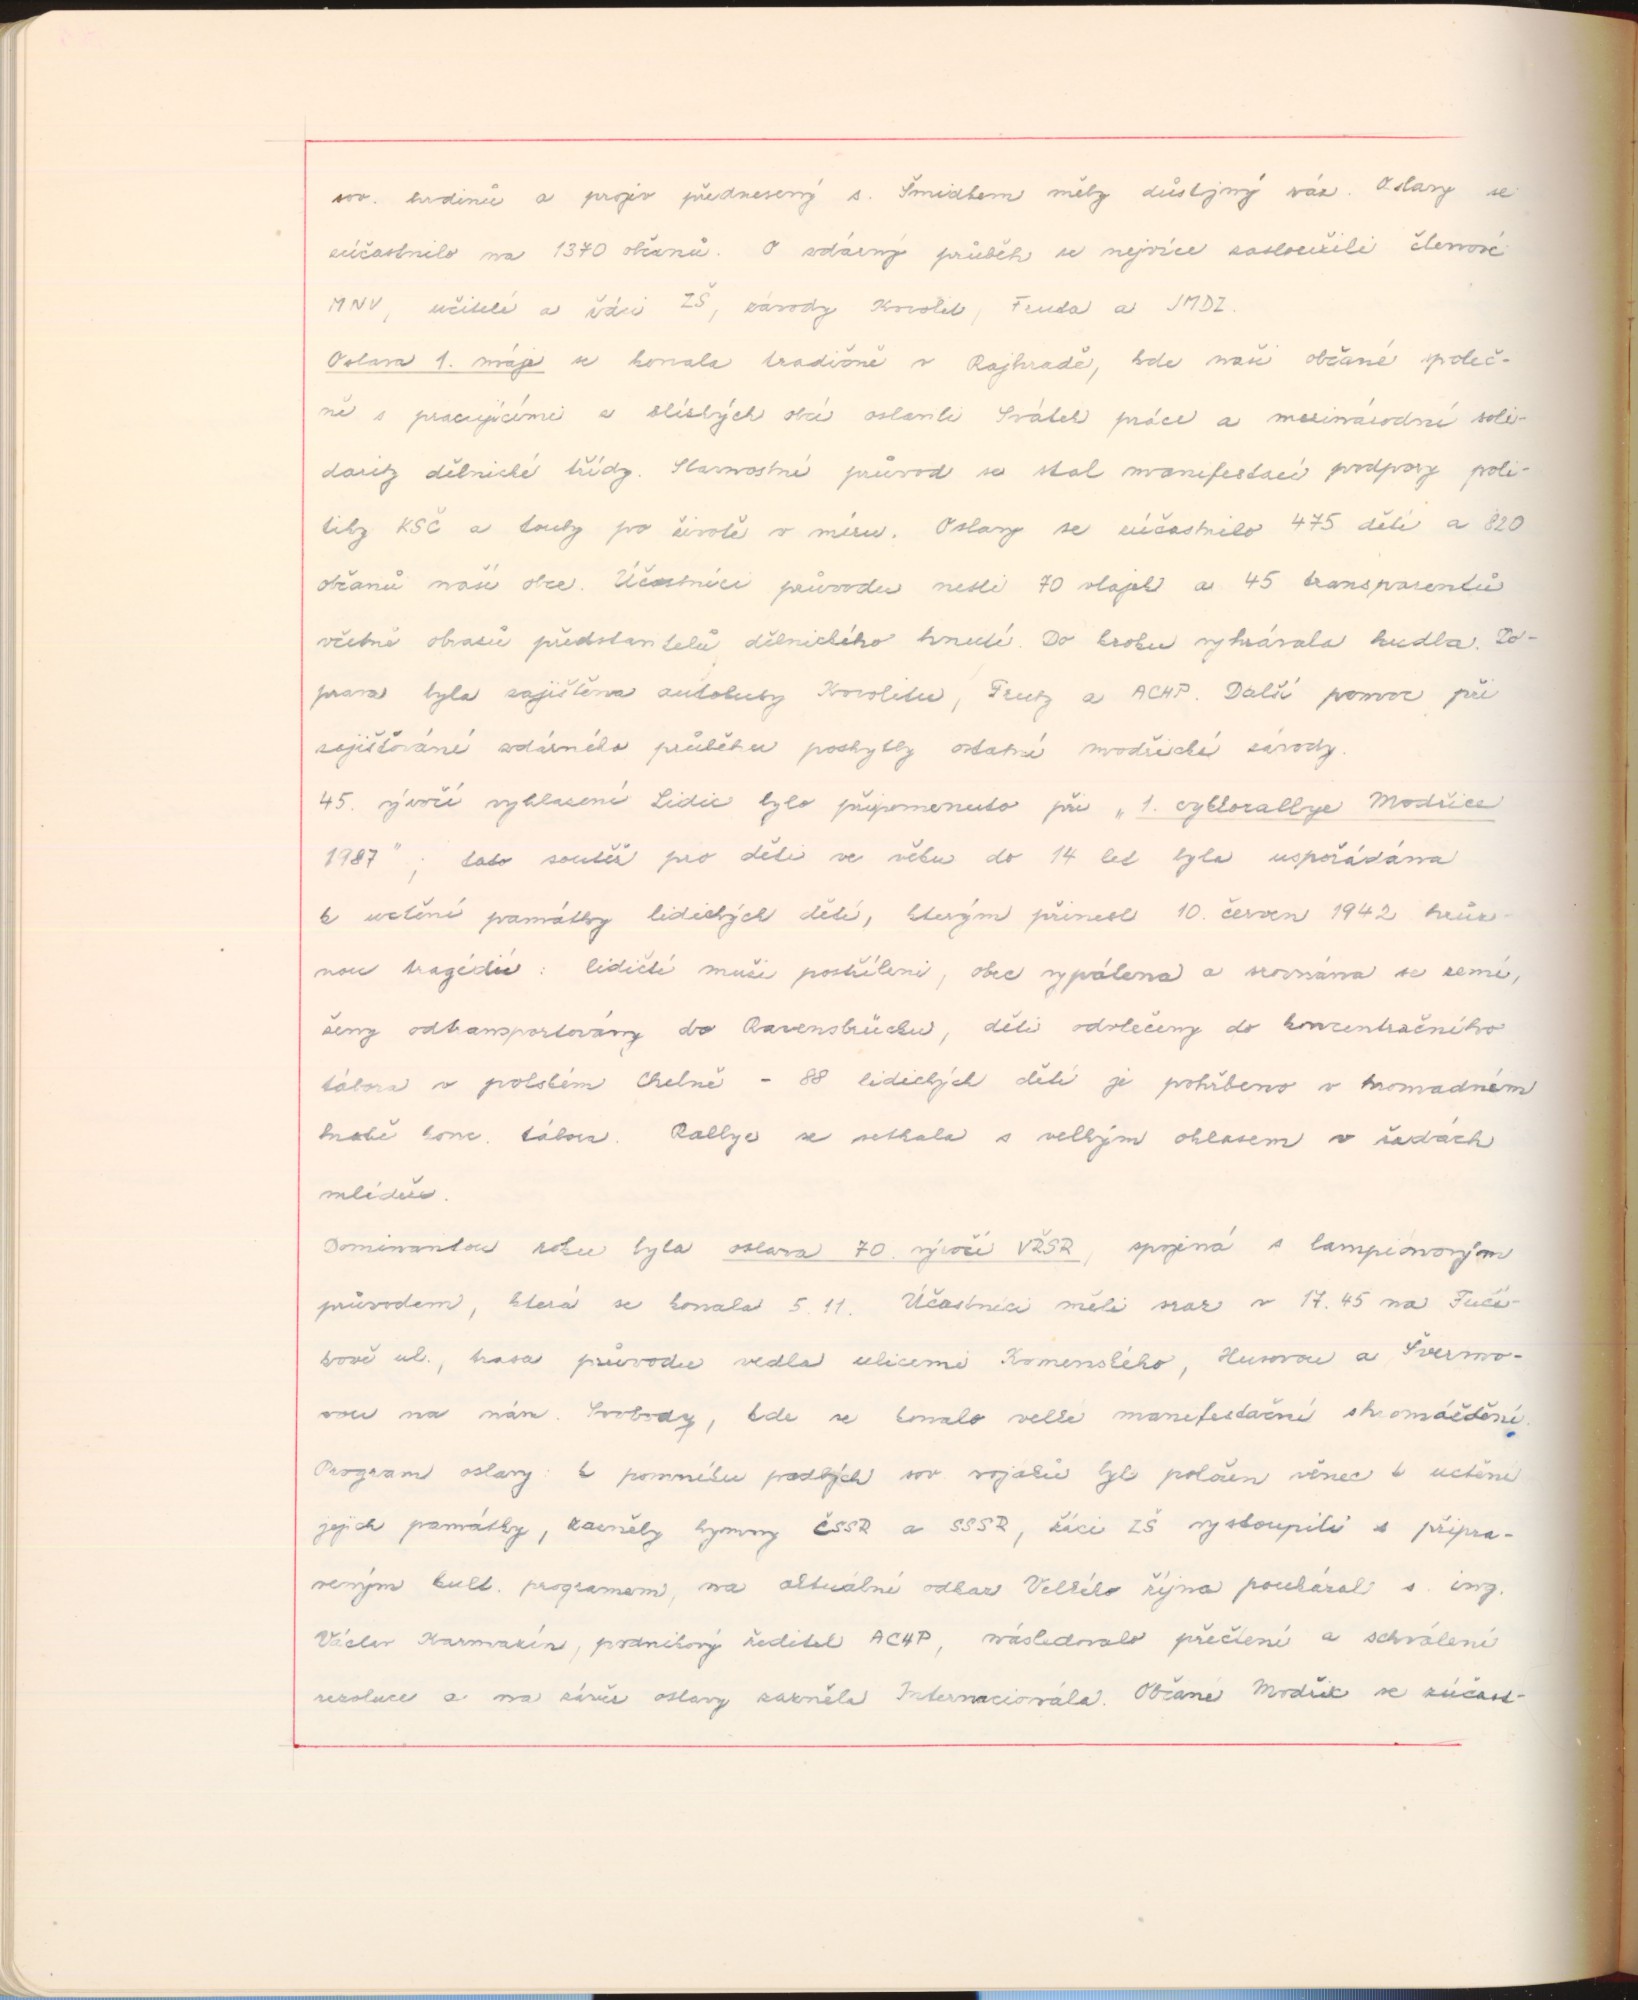 sov. hrdinů a projev přednesený s. Šmidtem měly důstojný ráz. Oslavy se
zúčastnilo na 1370 občanů. O zdárný průběh se nejvíce zasloužili členové
MNV, učitelé a žáci ZŠ, závody Kovolit, Fruta a JMDZ.
Oslava 1. máje se konala tradičně v Rajhradě, kde naši občané společ-
ně s pracujícími z blízkých obcí oslavili Svátek práce a mezinárodní soli-
darity dělnické třídy. Slavnostní průvod se stal manifestací podpory poli-
tiky KSČ a touhy po životě v míru. Oslavy se zúčastnilo 475 dětí a 820
občanů naší obce. Účastníci průvodu nesli 70 vlajek a 45 transparentů
včetně obrazů představitelů dělnického hnutí. Do kroku vyhrávala hudba. Do-
prava byla zajištěna autobusy Kovolitu, Fruty a ACHP. Další pomoc při
zajišťování zdárného průběhu poskytly ostatní modřické závody.
45. výročí vyhlazení Lidic bylo připomenuto při „1. cyklorallye Modřice
1987", tato soutěž pro děti ve věku do 14 let byla uspořádána
k uctění památky lidických dětí, kterým přinesl 10. červen 1942 hrůz-
nou tragédii: lidičtí muži postříleni, obec vypálena a srovnána se zemí,
ženy odtransportovány do Ravensbrücku, děti odvlečeny do koncentračního
tábora v polském Chelmě - 88 lidických dětí je pohřbeno v hromadném
hrobě konc. tábora. Rallye se setkala s velkým ohlasem v řadách
mládeže.
Dominantou roku byla oslava 70. výročí VŘSR, spojená s lampionovým
průvodem, která se konala 5.11. Účastníci měli sraz v 17.45 na Fučí-
kově ul., trasa průvodu vedla ulicemi Komenského, Husovou a Švermo-
vou na nám. Svobody, kde se konalo velké manifestační shromáždění.
Program oslavy: k pomníku padlých sov. vojáků byl položen věnec k uctění
jejich památky, zazněly hymny ČSSR a SSSR, žáci ZŠ vystoupili s připra-
veným kult. programem, na aktuální odkaz Velkého října poukázal s. ing.
Václav Karmazín, podnikový ředitel ACHP, následovalo přečtení a schválení
rezoluce a na závěr oslavy zazněla Internacionála. Občané Modřic se zúčast-